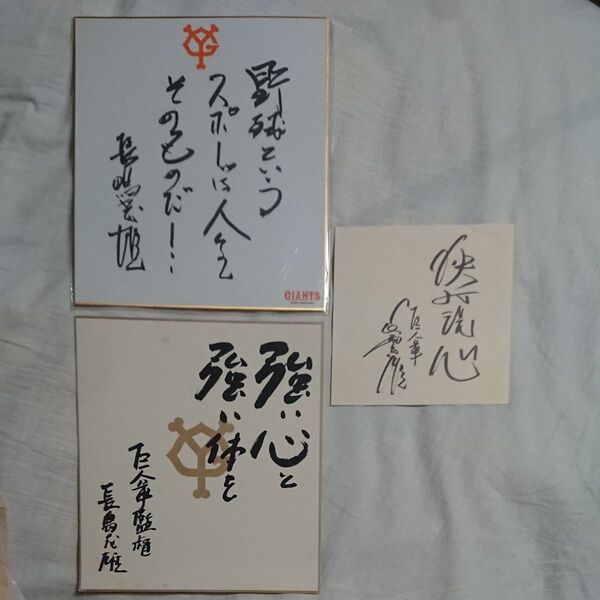 野球という
スポーツは人生
そのものだ！
長嶋茂雄
GIANTS
強い心と
強い体を
巨人軍監督
長島茂雄
巨人軍